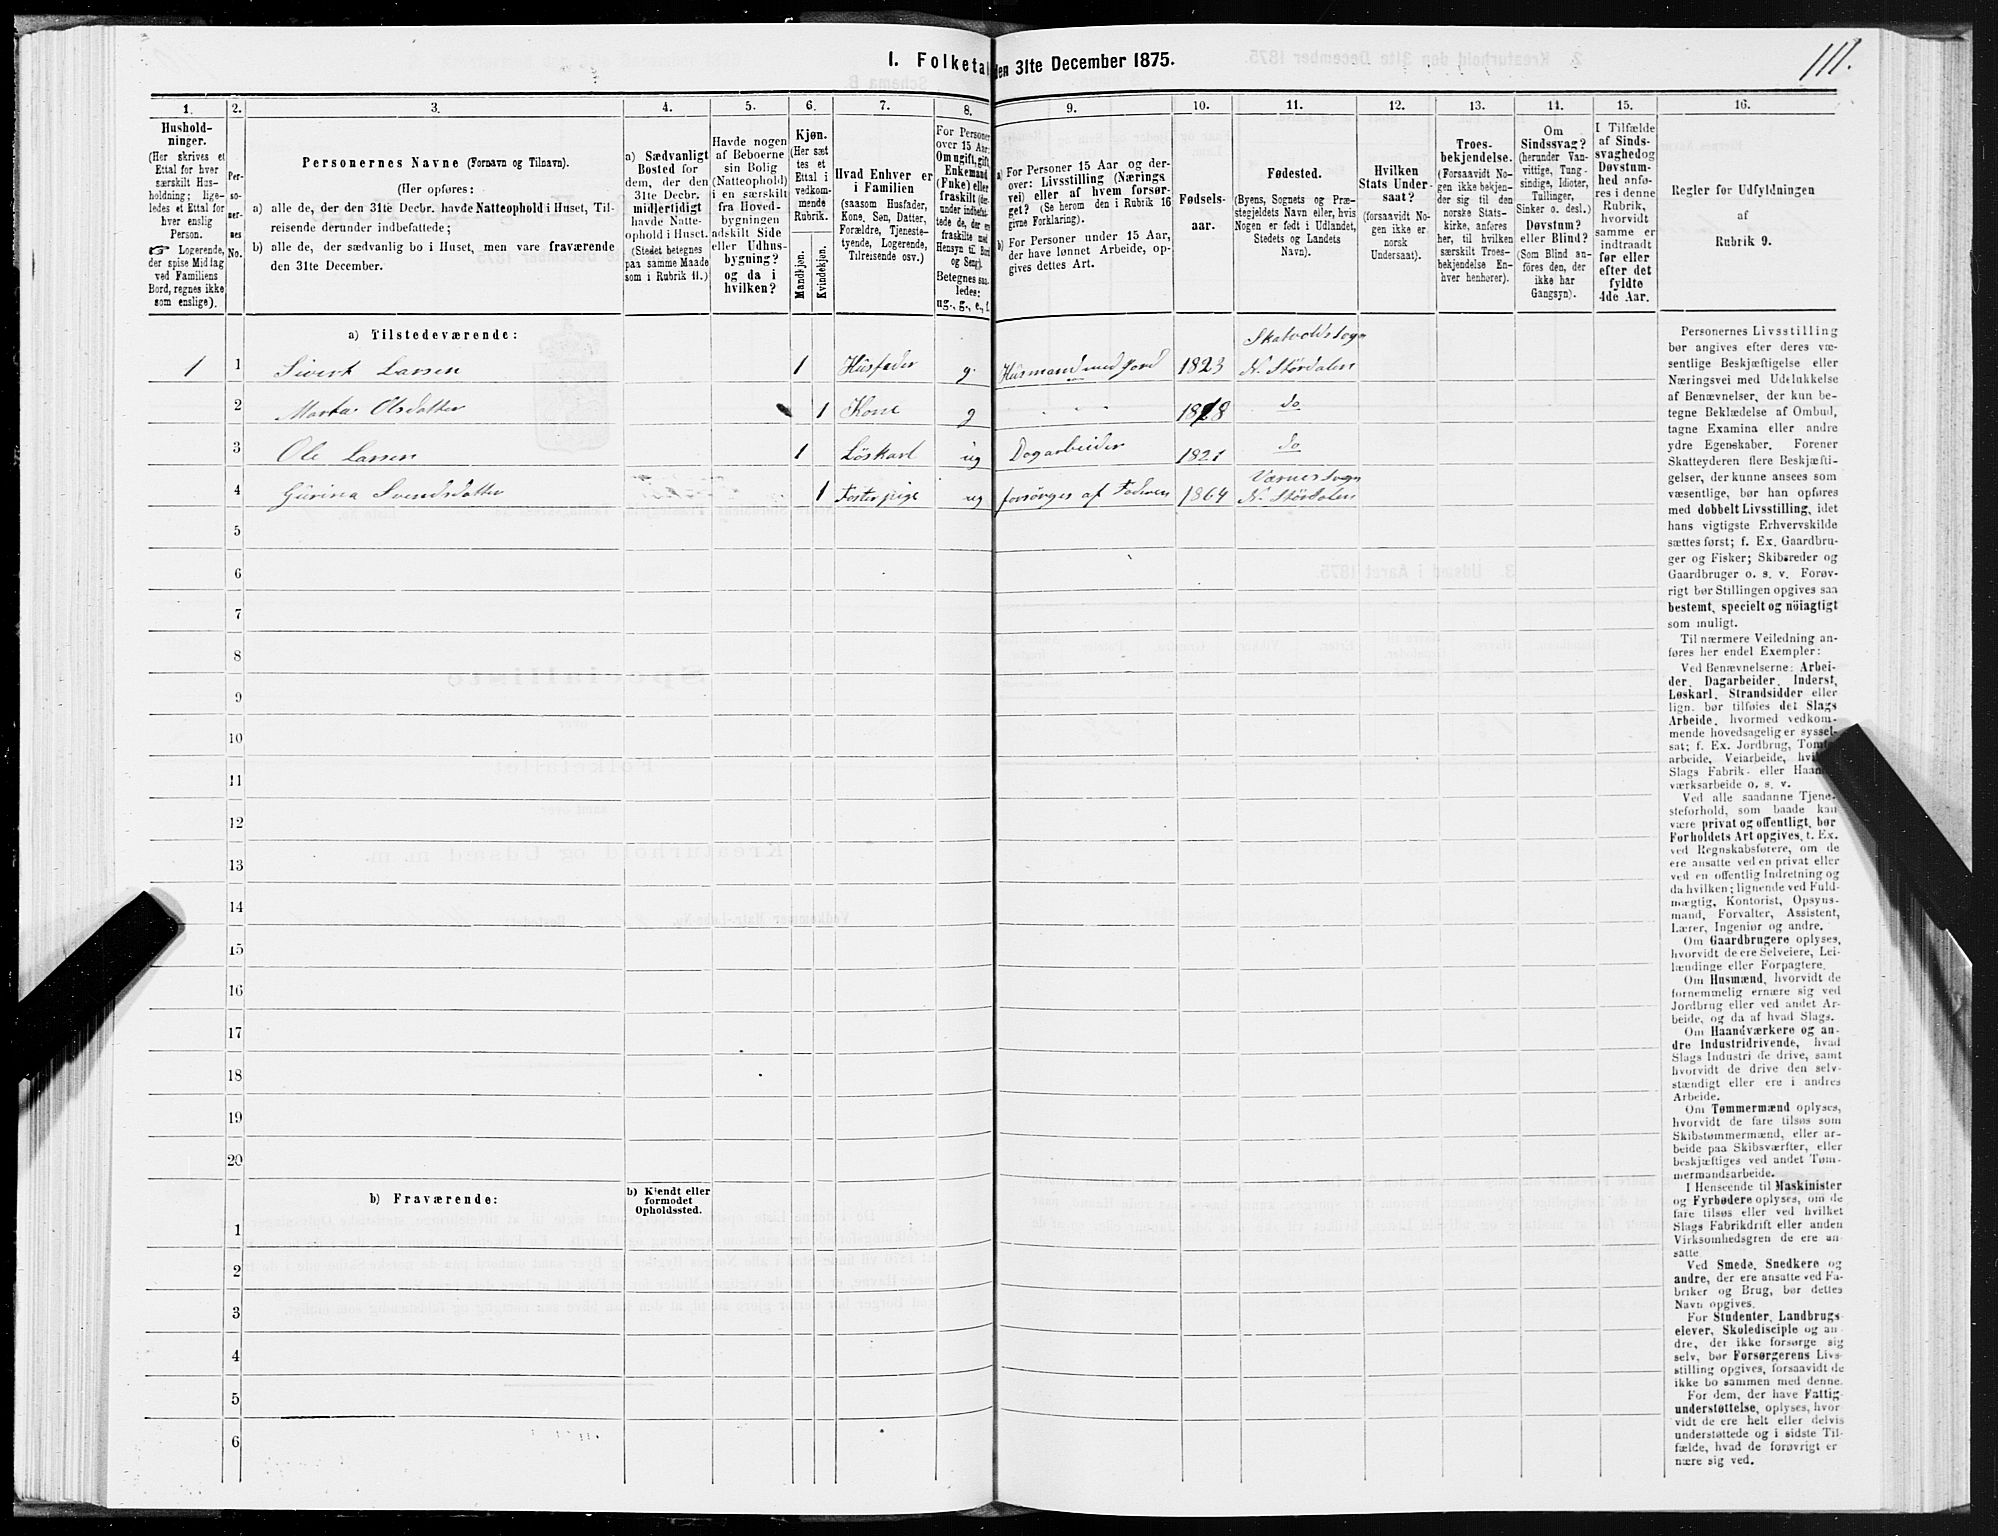 I. Folketal den 31te December 1875.
111.
1. 2. 3. 4. 5. 6. 7. 8. 9. 10. 11. 12. 13. 14. 15. 16.
Hushold-
ninger.
(Her skrives et
Ettal for hver
særskilt Hus-
holdning; lige-
ledes et Ettal for
hver enslig
Person.
☞ Logerende,
der spise Middag
ved Familiens
Bord, regnes ikke
som enslige).
Per-
so-
ner-
nes
No.
Personernes Navne (Fornavn og Tilnavn).
(Her opføres:
a) alle de, der den 31te Decbr. havde Natteophold i Huset, Til-
reisende derunder indbefattede;
b) alle de, der sædvanlig bo i Huset, men vare fraværende
den 31te December.
a) Sædvanligt
Bosted for
dem, der den
31te Decbr.
midlertidigt
havde Natte-
ophold i Huset.
(Stedet betegnes
paa samme Maade
som i Rubrik 11.)
Havde nogen
af Beboerne
sin Bolig
(Natteophold)
i en særskilt
fra Hoved-
bygningen
adskilt Side
eller Udhus-
bygning?
og da i
hvilken?
Kjøn.
(Her sæt
tes et
Ettal i
vedkom-
mende
Rubrik.
Mandkjøn.
Kvindekjøn.
Hvad Enhver er
i Familien
(saasom Husfader,
Kone, Søn, Datter,
Forældre, Tjeneste-
tyende, Logerende,
Tilreisende osv.)
For Personer
over 15 Aar:
Om ugift, gift,
Enkemand
(Enke) eller
fraskilt (der-
under indbefat-
tede de, der ere
fraskilte med
Hensyn til Bord
og Seng).
Betegnes saa-
ledes:
ug., g., e., f.
a) For Personer 15 Aar og der-
over: Livsstilling (Nærings
vei) eller af hvem forsør-
get? (Se herom den i Rubrik 16
givne Forklaring).
b) For Personer under 15 Aar,
der have lønnet Arbeide, op-
gives dettes Art.
Fødsels-
aar.
Fødested.
(Byens, Sognets og Præ-
stegjeldets Navn eller, hvis
Nogen er født i Udlandet,
Stedets og Landets
Navn).
Hvilken
Stats Under-
saat?
(forsaavidt No-
gen ikke er
norsk
Undersaat).
Troes-
bekjendelse.
(Forsaavidt No-
gen ikke bekjen-
der sig til den
norske Stats-
kirke, anføres
her, til hvilken
særskilt Troes-
bekjendelse En-
hver henhører).
Om
Sindssvag?
(herunder Van-
vittige, Tung-
sindige, Idioter,
Tullinger,
Sinker o. desl.)
Døvstum?
eller Blind?
(Som Blind an-
føres den, der
ikke har
Gangsyn).
I Tilfælde
af Sinds-
svaghed og
Døvstum-
hed anfø-
res i denne
Rubrik,
hvorvidt
samme er
indtraadt
før eller
efter det
fyldte
4de Aar.
Regler for Udfyldningen
af
Rubrik 9.
a) Tilstedeværende:
Skatvolds sogn
1 1 Sivert Larsen 1 Husfader g. Husmand med Jord 1823 N. Stördalen
2 Marta Olsdatter 1 Kone g " " " 1818 do
3 Ole Larsen 1 Löskarl ug Dagarbeider 1821 do
Værnes sogn
4 Gurina Svendsdatter 1 Fosterpige ug forsörges af Faderen 1864 N. Stördalen
5
6
7
8
9
10
11
12
13
14
15
16
17
18
19
20
b) Fraværende:
b) Kjendt eller
formodet
Opholdssted.
1
2
3
4
5
6
Personernes Livsstilling
bør angives efter deres væ-
sentlige Beskjæftigelse eller
Næringsvei med Udelukkelse
af Benævnelser, der kun be-
tegne Beklædelse af Ombud,
tagne Examina eller andre
ydre Egenskaber. Forener
Skatteyderen flere Beskjæfti-
gelser, der kunne ansees som
væsentlige, bør han opføres
med dobbelt Livsstilling, idet
hans vigtigste Erhvervskilde
sættes først; f. Ex. Gaardbru-
ger og Fisker; Skibsreder og
Gaardbruger o. s. v. Forøv-
rigt bør Stillingen opgives saa
bestemt, specielt og nöiagtigt
som muligt.
Til nærmere Veiledning an-
føres her endel Exempler:
Ved Benævnelserne: Arbei-
der, Dagarbeider, Inderst,
Løskarl, Strandsidder eller
lign. bør tilføies det Slags
Arbeide, hvormed vedkom-
mende hovedsagelig er syssel-
sat; f. Ex. Jordbrug, Tomte-
arbeide, Veiarbeide, hvilket
Slags Fabrik- eller Haand-
værksarbeide o. s. v.
Ved alle saadanne Tjene-
steforhold, som baade kan
være privat og offentligt, bør
Forholdets Art opgives, t. Ex.
ved Regnskabsførere, om de
ere ansatte ved en privat eller
ved en offentlig Indretning og
da hvilken; lignende ved Fuld-
mægtig, Kontorist, Opsyns-
mand, Forvalter, Assistent,
Lærer, Ingeniør og andre.
Om Gaardbrugere oplyses,
hvorvidt de ere Selveiere, Lei-
lændinge eller Forpagtere.
Om Husmænd, hvorvidt de
fornemmelig ernære sig ved
Jordbrug eller ved andet Ar-
beide, og da af hvad Slags.
Om Haandværkere og an-
dre Industridrivende, hvad
Slags Industri de drive, samt
hvorvidt de drive den selv-
stændigt eller ere i andres
Arbeide.
Om Tømmermænd oplyses,
hvorvidt de fare tilsøs som
Skibstømmermænd, eller ar-
beide paa Skibsværfter, eller
beskjæftiges ved andet Tøm-
mermandsarbeide.
I Henseende til Maskinister
og Fyrbødere oplyses, om de
fare tilsøs eller ved hvilket
Slags Fabrikdrift eller anden
Virksomhedsgren de ere an-
satte
Ved Smede, Snedkere og
andre, der ere ansatte ved Fa-
briker og Brug, bør dettes
Navn opgives.
For Studenter, Landbrugs-
elever, Skoledisciple og an-
dre, der ikke forsørge sig
selv, bør Forsørgerens Livs-
stilling opgives, forsaavidt de
ikke bo sammen med denne.
For dem, der have Fattig-
understøttelse, oplyses, hvor-
vidt de ere helt eller delvis
understøttede og i sidste Til-
fælde, hvad de forøvrigt er
nære sig ved.